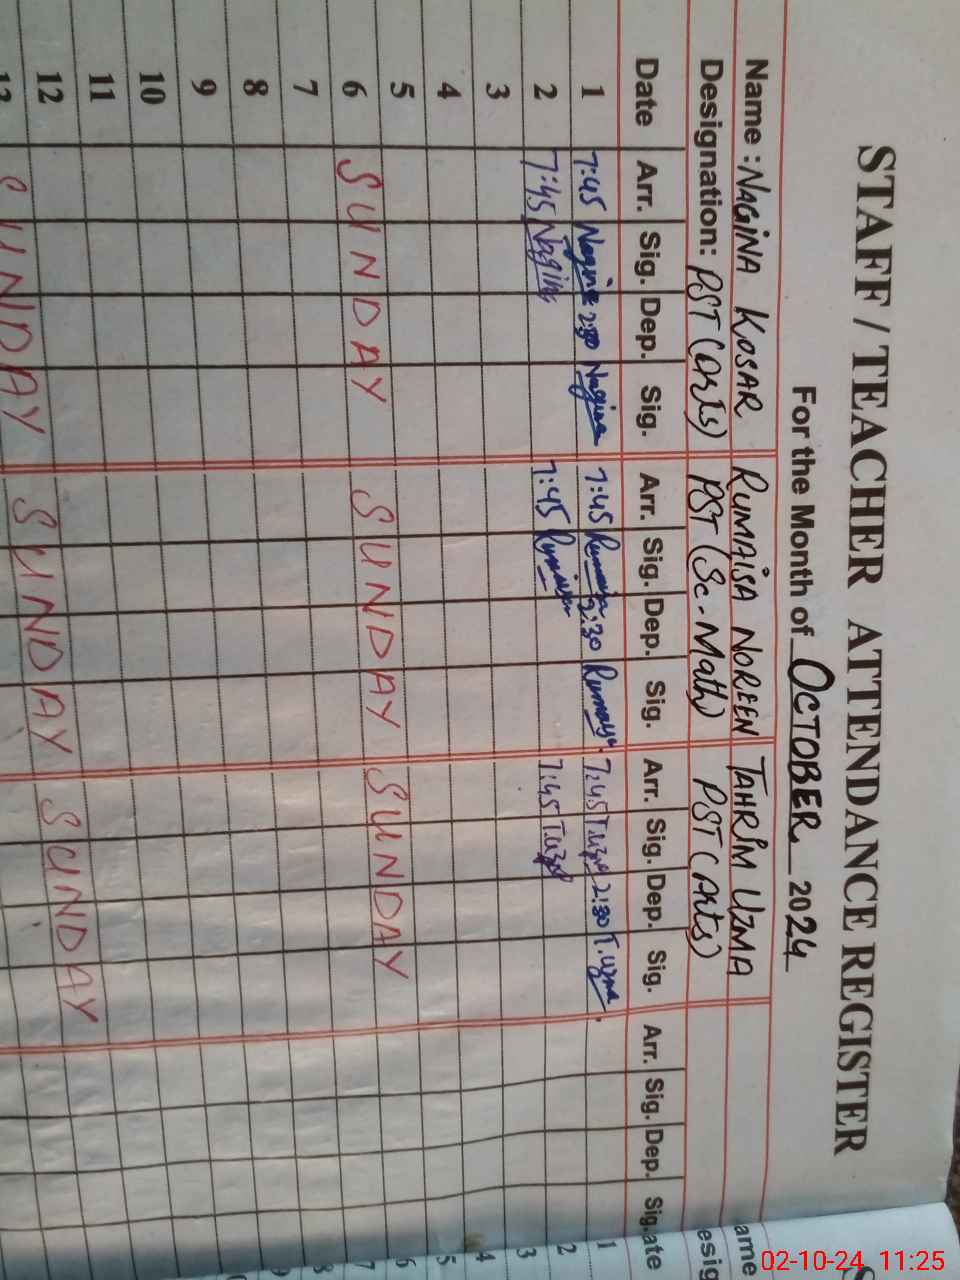 STAFF / TEACHER ATTENDANCE REGISTER
For the Month of OCTOBER 2024
Name : NAGINA KOSAR RUMAISA NOREEN TAHRIM UZMA
Designation: PST (arts) PST (Sc.-Math) PST (Arts)
Date Arr. Sig. Dep. Sig. Arr. Sig. Dep. Sig. Arr. Sig. Dep. Sig. Arr. Sig. Dep. Sig.
1 7:45 Nagina 2:30 Nagina 7:45 2:30 7:45 T.uzma 2:30 T.uzma
2 7:45 Nagina 7:45 7:45 T.uzma
3
4
5
6 SUNDAY SUNDAY SUNDAY
7
8
9
10
11
12
13 SUNDAY SUNDAY SUNDAY
ame
esig
ate
1
2
3
4
5
6
7
8
02-10-24 11:25